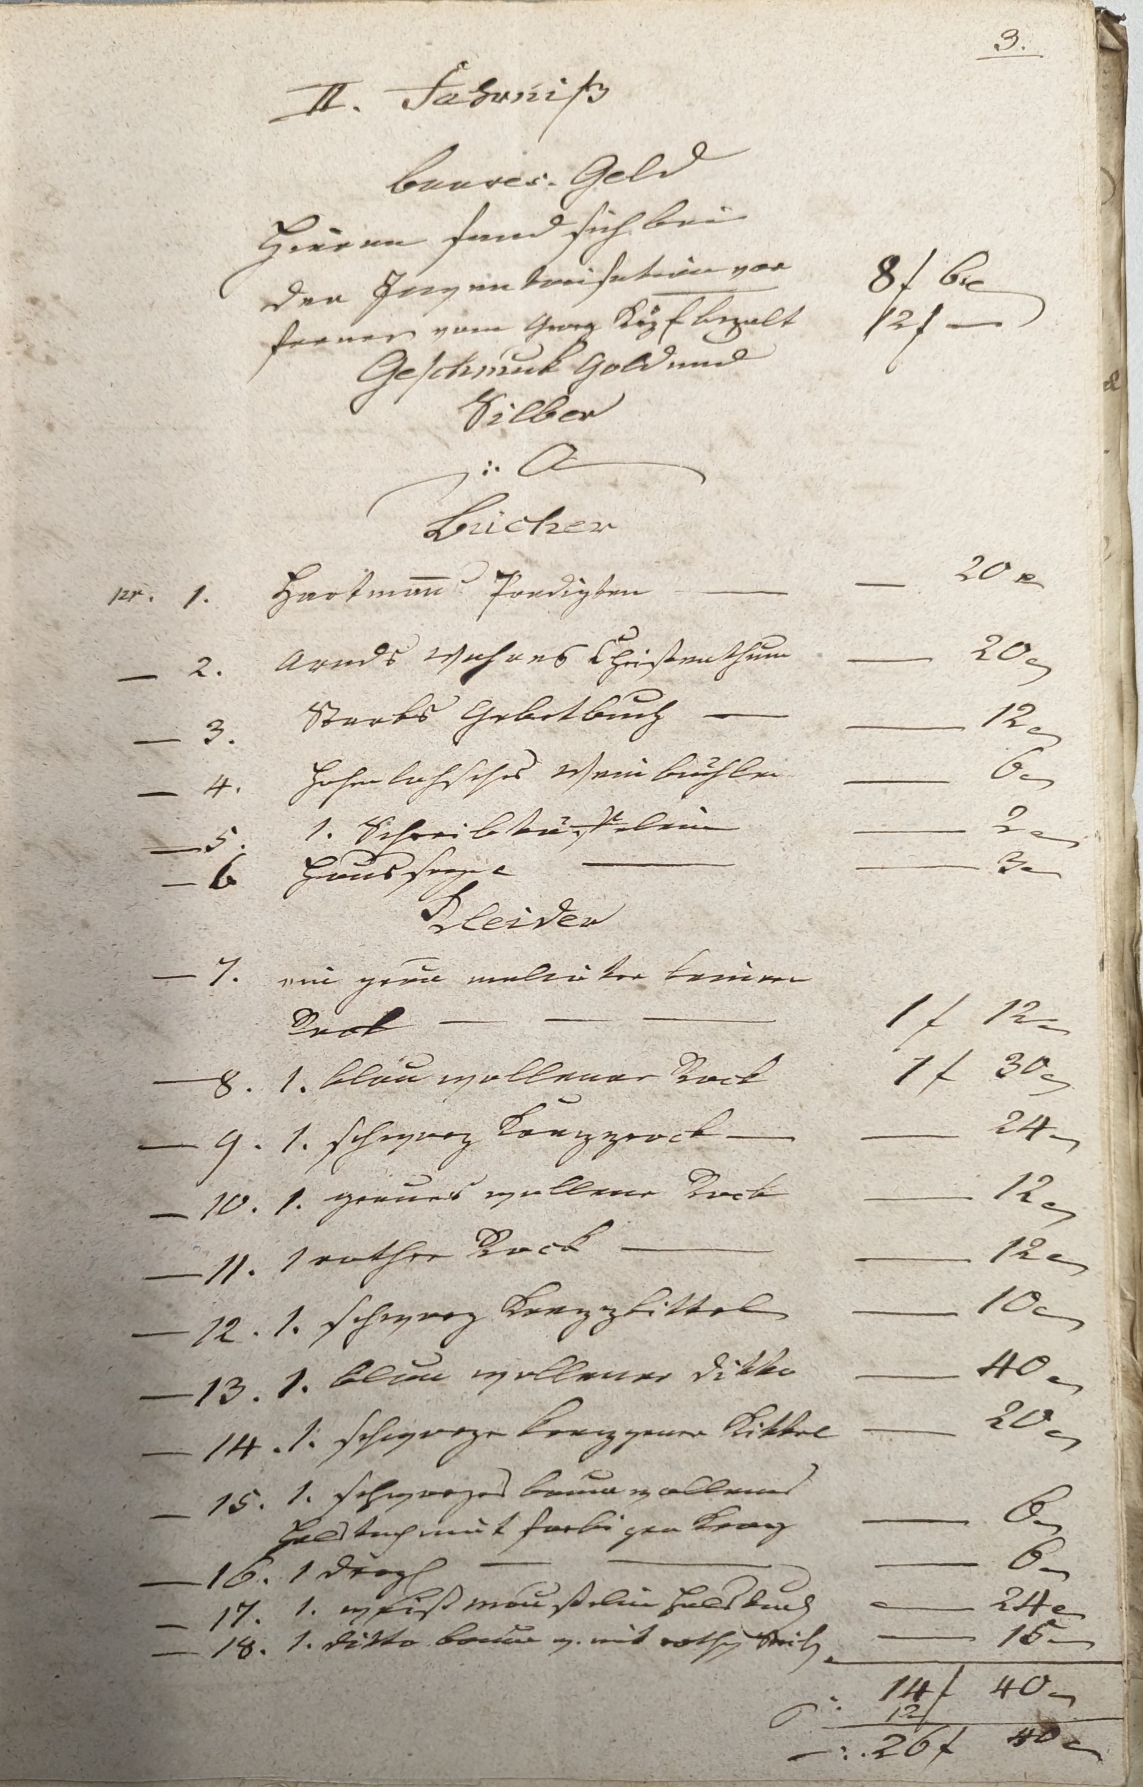 3.
II. Fahrniß
baares Geld
Hieran fand sich bei
der Inventirisation vor 8 f 6 x
ferner vom Georg Köpf bezalt 12 f —
Geschmuk Gold und
Silber
∴ O
Bücher
nr. 1. Hartmanns Predigten — — 20 x
— 2. Arnds wahres Christenthum — 20 x
— 3. Starks Gebetbuch — — 12 x
— 4. Hohenlohsches Weinbüchlen — 6 x
— 5. 1. — 2 x
— 6 Haussegen — — 3 x
Kleider
— 7. ein grün
Rock — — — 1 f 12 x
— 8. 1. blau wollener Rock 1 f 30 x
— 9. 1. schwarz — — 24 x
— 10. 1. graues wollener Rock — 12 x
— 11. 1 rother Rock — — 12 x
— 12. 1. schwarz — 10 x
— 13. 1. blau wollener ditto — 40 x
— 14. 1. schwarzer Kittel — 20 x
— 15. 1. schwarzes baumwollenes
Halstuch mit farbigen Kranz — 6 x
— 16. 1 — — — 6 x
— 17. 1. weiß mousselin Halstuch — 24 x
— 18. 1. ditto baumw. mit roth — 15 x
14 f 40 x
12 f
26 f 40 x